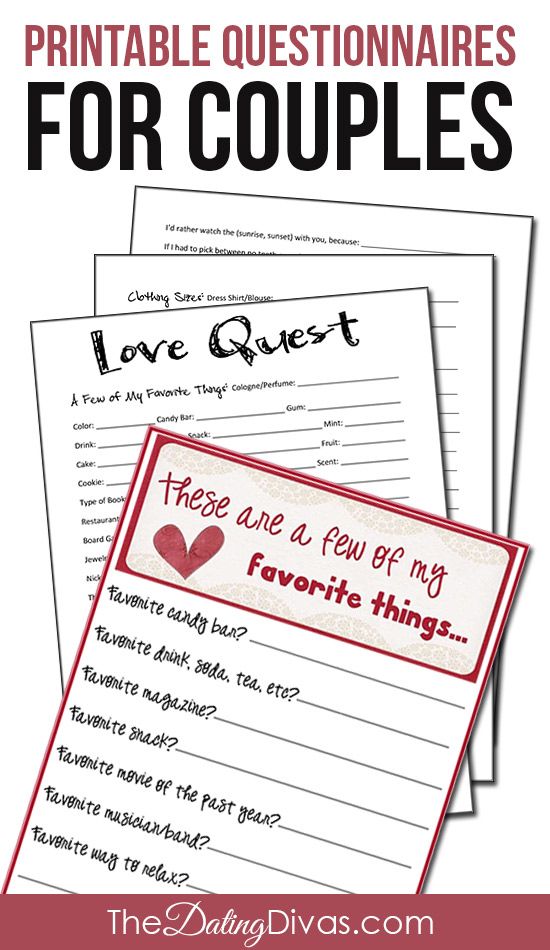 PRINTABLE QUESTIONNAIRES
FOR COUPLES
I'd rather watch the (sunrise, sunset) with you, because:
If I had to pick between no
Clothing Sizes: Dress Shirt/Blouse:
Love Quest
A Few of My Favorite Things: Cologne/Perfume:
Color: Candy Bar: Gum:
Drink: Snack: Mint:
Cake: Fruit:
Cookie: Scent:
Type of Book
Restaurant
Board Ga
Jewel
Nick
These are a few of my
favorite things...
Favorite candy bar?
Favorite drink, soda, tea, etc?
Favorite magazine?
Favorite snack?
Favorite movie of the past year?
Favorite musician/band?
Favorite way to relax?
TheDatingDivas.com